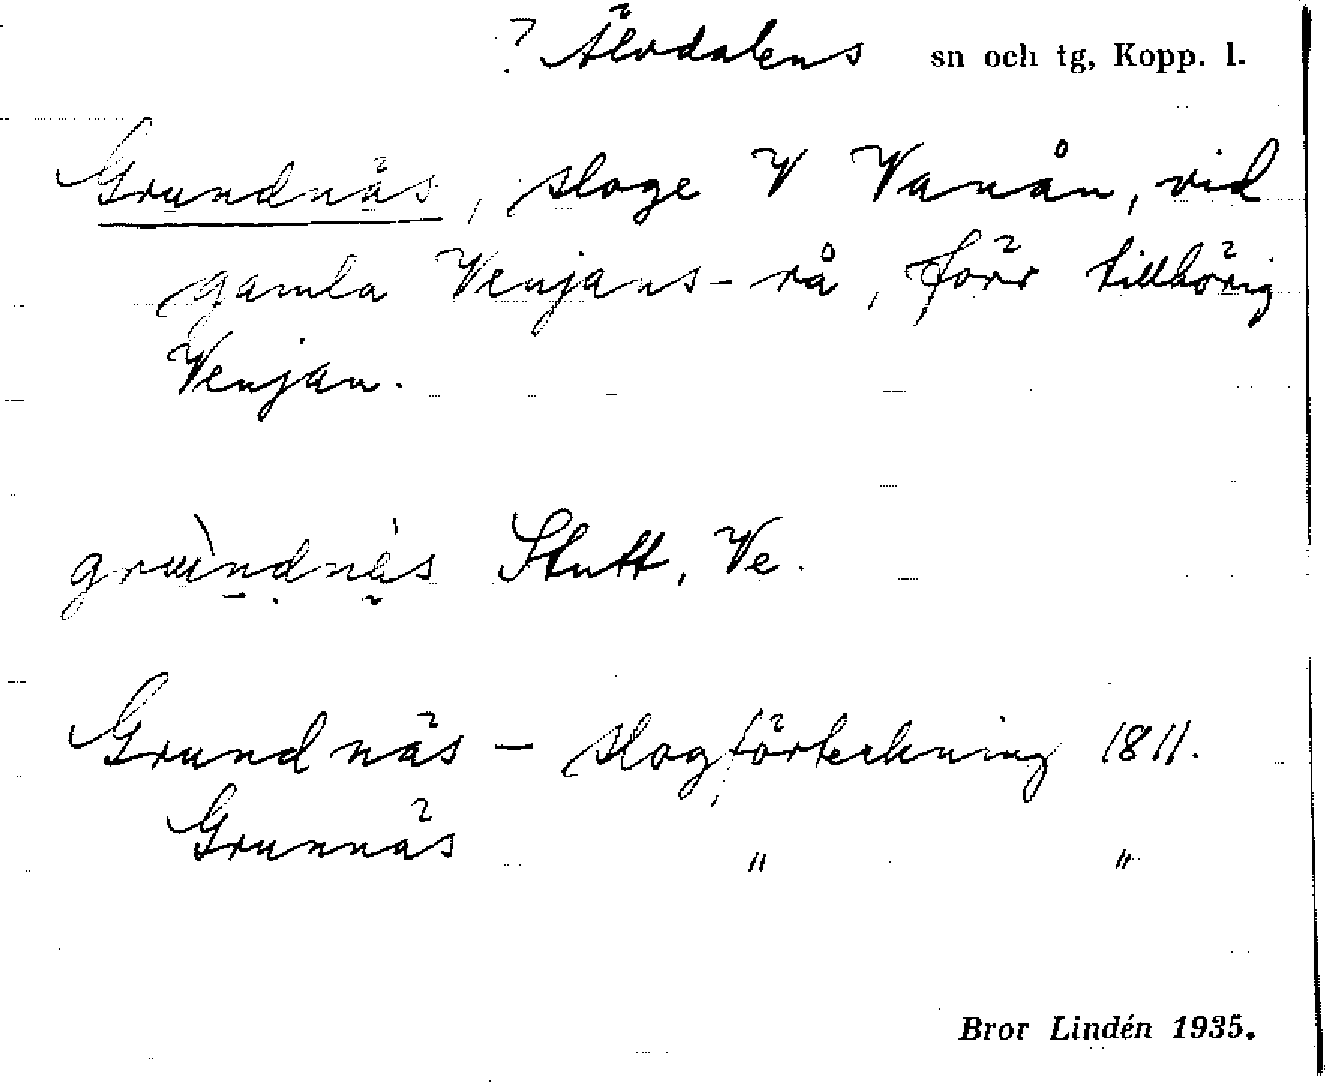 ? Älvdalens sn och tg, Kopp. l.
Grundnäs, sloge V Vanån, vid
gamla Venjans-rå, förr tillhörig
Venjan.
grùndnäs Stutt, Ve.
Grundnäs — slogförteckning 1811.
Grunnäs " "
Bror Lindén 1935.